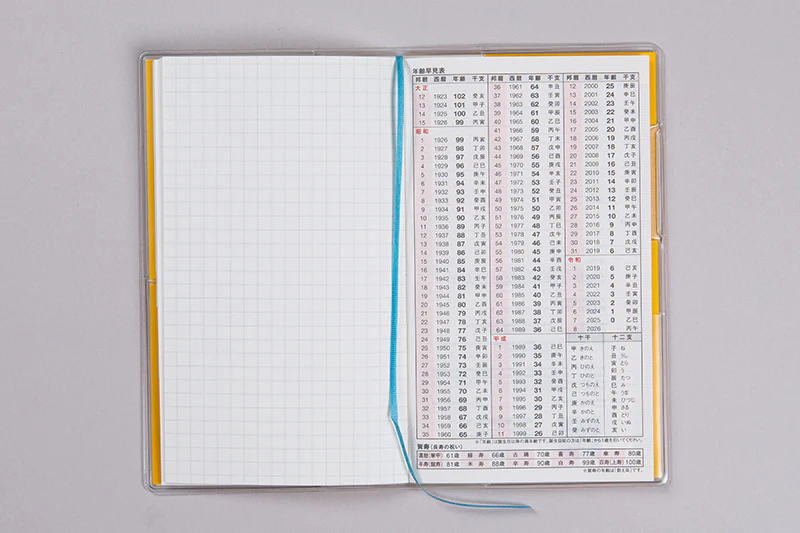 年齢早見表
邦暦 西暦 年齢 干支
大正
12 1923 102 癸亥
13 1924 101 甲子
14 1925 100 乙丑
15 1926 99 丙寅
昭和
1 1926 99 丙寅
2 1927 98 丁卯
3 1928 97 戊辰
4 1929 96 己巳
5 1930 95 庚午
6 1931 94 辛未
7 1932 93 壬申
8 1933 92 癸酉
9 1934 91 甲戌
10 1935 90 乙亥
11 1936 89 丙子
12 1937 88 丁丑
13 1938 87 戊寅
14 1939 86 己卯
15 1940 85 庚辰
16 1941 84 辛巳
17 1942 83 壬午
18 1943 82 癸未
19 1944 81 甲申
20 1945 80 乙酉
21 1946 79 丙戌
22 1947 78 丁亥
23 1948 77 戊子
24 1949 76 己丑
25 1950 75 庚寅
26 1951 74 辛卯
27 1952 73 壬辰
28 1953 72 癸巳
29 1954 71 甲午
30 1955 70 乙未
31 1956 69 丙申
32 1957 68 丁酉
33 1958 67 戊戌
34 1959 66 己亥
35 1960 65 庚子
邦暦 西暦 年齢 干支
36 1961 64 辛丑
37 1962 63 壬寅
38 1963 62 癸卯
39 1964 61 甲辰
40 1965 60 乙巳
41 1966 59 丙午
42 1967 58 丁未
43 1968 57 戊申
44 1969 56 己酉
45 1970 55 庚戌
46 1971 54 辛亥
47 1972 53 壬子
48 1973 52 癸丑
49 1974 51 甲寅
50 1975 50 乙卯
51 1976 49 丙辰
52 1977 48 丁巳
53 1978 47 戊午
54 1979 46 己未
55 1980 45 庚申
56 1981 44 辛酉
57 1982 43 壬戌
58 1983 42 癸亥
59 1984 41 甲子
60 1985 40 乙丑
61 1986 39 丙寅
62 1987 38 丁卯
63 1988 37 戊辰
64 1989 36 己巳
平成
1 1989 36 己巳
2 1990 35 庚午
3 1991 34 辛未
4 1992 33 壬申
5 1993 32 癸酉
6 1994 31 甲戌
7 1995 30 乙亥
8 1996 29 丙子
9 1997 28 丁丑
10 1998 27 戊寅
11 1999 26 己卯
邦暦 西暦 年齢 干支
12 2000 25 庚辰
13 2001 24 辛巳
14 2002 23 壬午
15 2003 22 癸未
16 2004 21 甲申
17 2005 20 乙酉
18 2006 19 丙戌
19 2007 18 丁亥
20 2008 17 戊子
21 2009 16 己丑
22 2010 15 庚寅
23 2011 14 辛卯
24 2012 13 壬辰
25 2013 12 癸巳
26 2014 11 甲午
27 2015 10 乙未
28 2016 9 丙申
29 2017 8 丁酉
30 2018 7 戊戌
31 2019 6 己亥
令和
1 2019 6 己亥
2 2020 5 庚子
3 2021 4 辛丑
4 2022 3 壬寅
5 2023 2 癸卯
6 2024 1 甲辰
7 2025 0 乙巳
8 2026 丙午
十干 十二支
甲 きのえ 子 ね
乙 きのと 丑 うし
丙 ひのえ 寅 とら
丁 ひのと 卯 う
戊 つちのえ 辰 たつ
己 つちのと 巳 み
庚 かのえ 午 うま
辛 かのと 未 ひつじ
壬 みずのえ 申 さる
癸 みずのと 酉 とり
戌 いぬ
亥 い
※「年齢」は誕生日以後の満年齢です。誕生日前の方は「年齢」から1歳を引いてください。
賀寿(長寿の祝い)
還暦(華甲) 61歳 緑寿 66歳 古稀 70歳 喜寿 77歳 傘寿 80歳
半寿(盤寿) 81歳 米寿 88歳 卒寿 90歳 白寿 99歳 百寿(上寿) 100歳
※賀寿の年齢は「数え年」です。